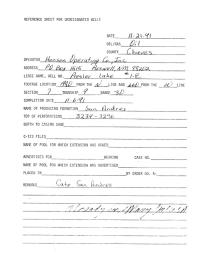 REFERENCE SHEET FOR UNDESIGNATED WELLS
DATE 11-21-91
OIL/GAS Oil
COUNTY Chaves
OPERATOR Hanson Operating Co., Inc.
ADDRESS PO Box Roswell, NM 88202
LEASE NAME, WELL NO. Lake #1-E
FOOTAGE LOCATION FROM THE LINE AND FROM THE LINE
SECTION 7 TOWNSHIP RANGE
COMPLETION DATE 11-6-91
NAME OF PRODUCING FORMATION San Andres
TOP OF PERFORATIONS 3234-3296
DEPTH TO CASING SHOE
C-123 FILED
NAME OF POOL FOR WHICH EXTENSION WAS ASKED
ADVERTISED FOR HEARING CASE NO.
NAME OF POOL FOR WHICH EXTENSION WAS ADVERTISED
PLACED IN BY ORDER NO. R-
REMARKS Cato San Andres